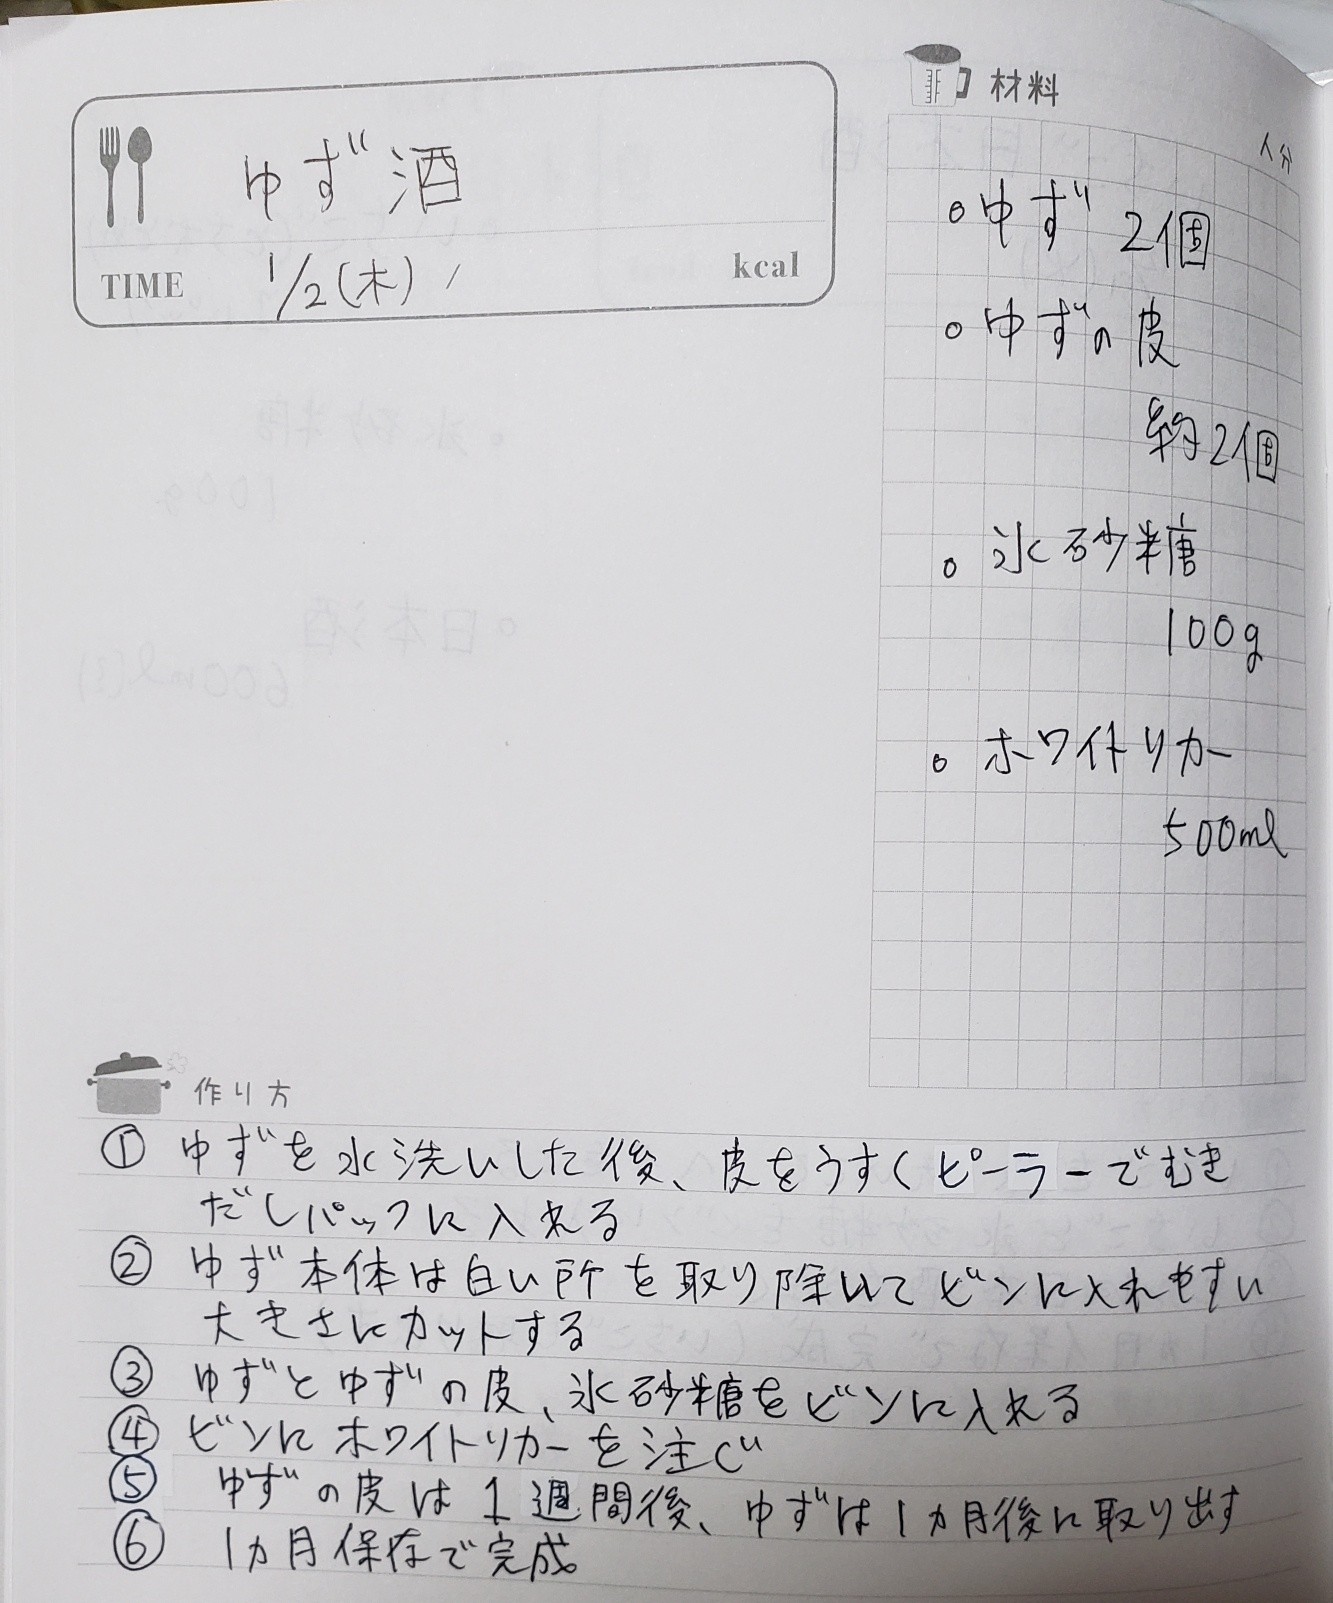 ゆず酒
TIME 1/2(木) kcal
材料
人分
○ゆず 2個
○ゆずの皮
約2個
○氷砂糖
100g
○ホワイトリカー
500ml
作り方
① ゆずを水洗いした後、皮をうすくピーラーでむき
だしパックに入れる
② ゆず本体は白い所を取り除いてビンに入れやすい
大きさにカットする
③ ゆずとゆずの皮、氷砂糖をビンに入れる
④ ビンにホワイトリカーを注ぐ
⑤ ゆずの皮は1週間後、ゆずは1カ月後に取り出す
⑥ 1カ月保存で完成。